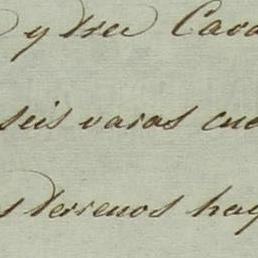 y trece Cava
seis varas cua
s terrenos hay